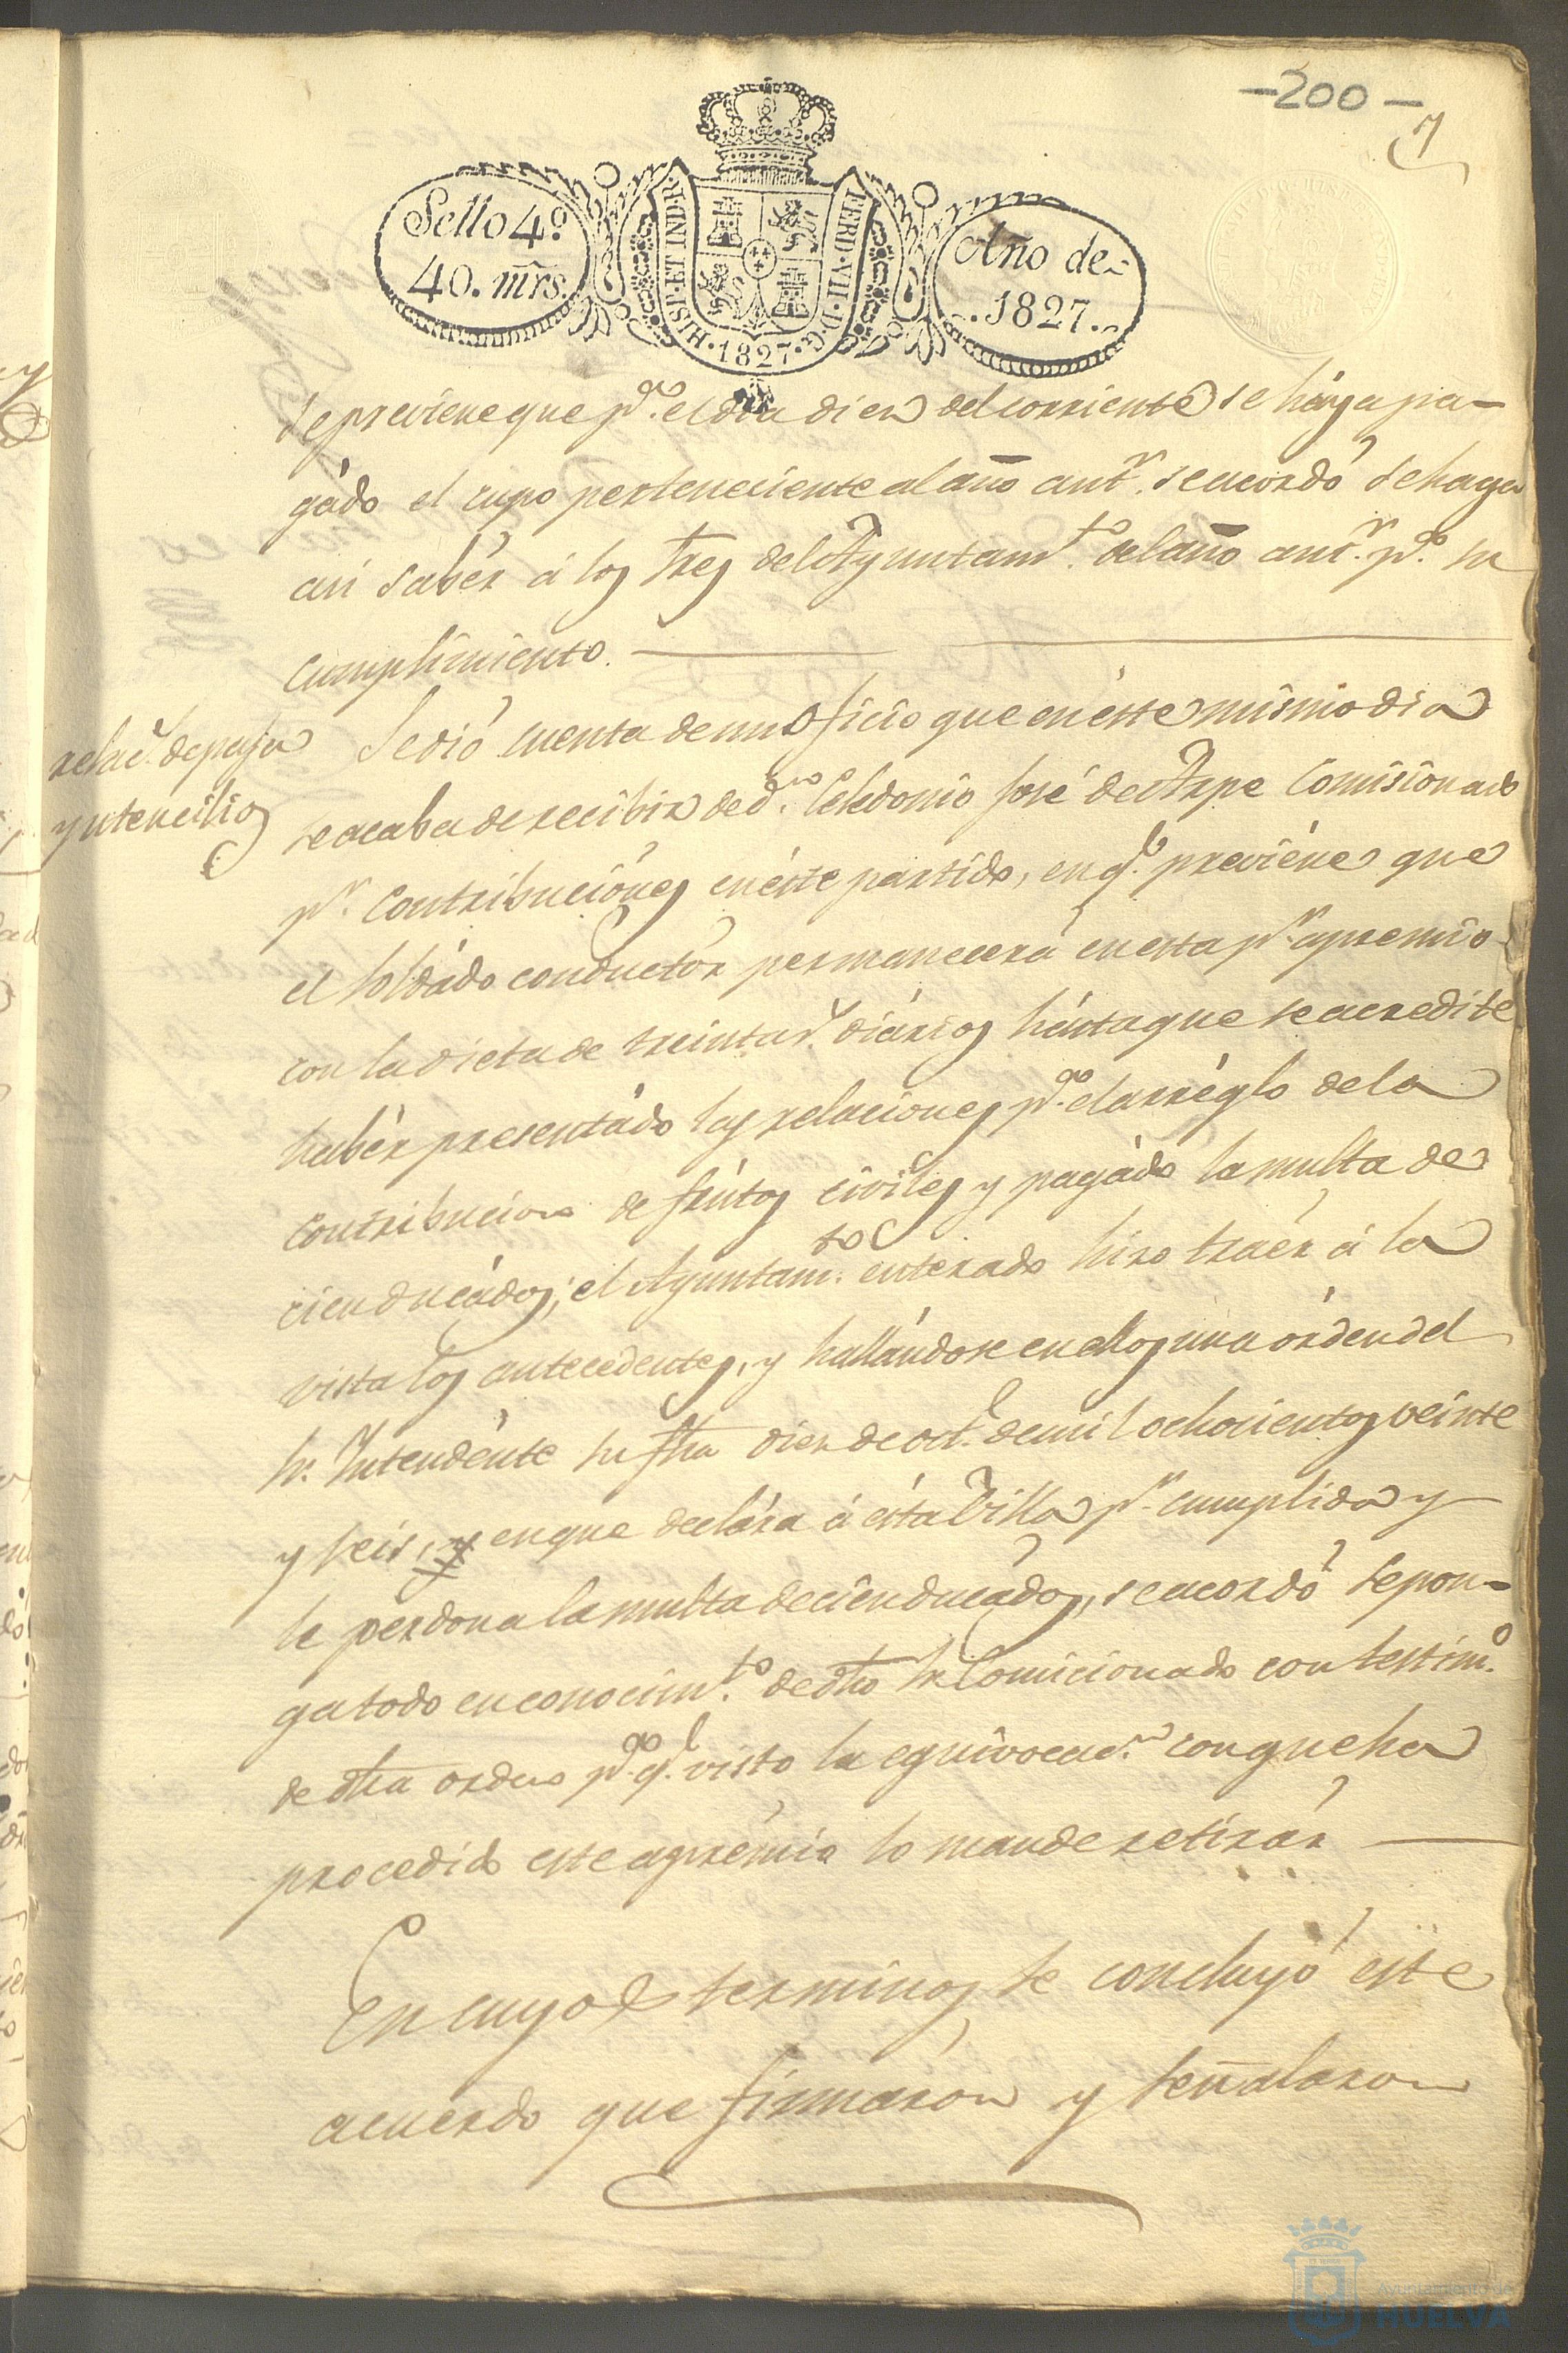 -200-
7
Sello 4º
40. mrs.
HISP. ET IND. R. 1827. FERD. VII. D. G.
Año de
1827.
se previene que pª. el dia diez del corriente se háya pa-
gádo el cupo perteneciente al año antr. se acordó se haga
asi sabér á los Sres del Ayuntamto. del año antr. pª. su
cumplimiento.
relacs. de paja
y utencilios
Se dió cuenta de un Oficio que en éste mismo dia
se acaba de recibir de dn. Celedonio José de Arpe Comisionado
pr. Contribuciónes en éste partido, en q. previéne que
el soldádo conductór permanecerá en esta pr. apremio
con la dieta de treinta rs. diários hásta que se acredite
habér presentádo las relaciones pª. el arréglo de la
contribucion de frútos civiles y pagádo la multa de
cien ducádos; el Ayuntamto. enterado hizo traér á la
vista los antecedentes, y hallándose en ellos una órden del
Sr. Intendénte su fha diez de oct. de mil ochocientos veinte
y seis, y en que declára á ésta Villa pr. cumplida y
le perdona la multa de cien ducádos, se acordó se pon-
ga todo en conocimto. de dho Sr Comicionado con testimo.
de dha orden pª. q. visto la equivocacn. con que ha
procedido este aprémio lo mande retirár
En cuyos terminos se concluyó este
acuerdo que firmáron y señalaron
Ayuntamiento de
HUELVA